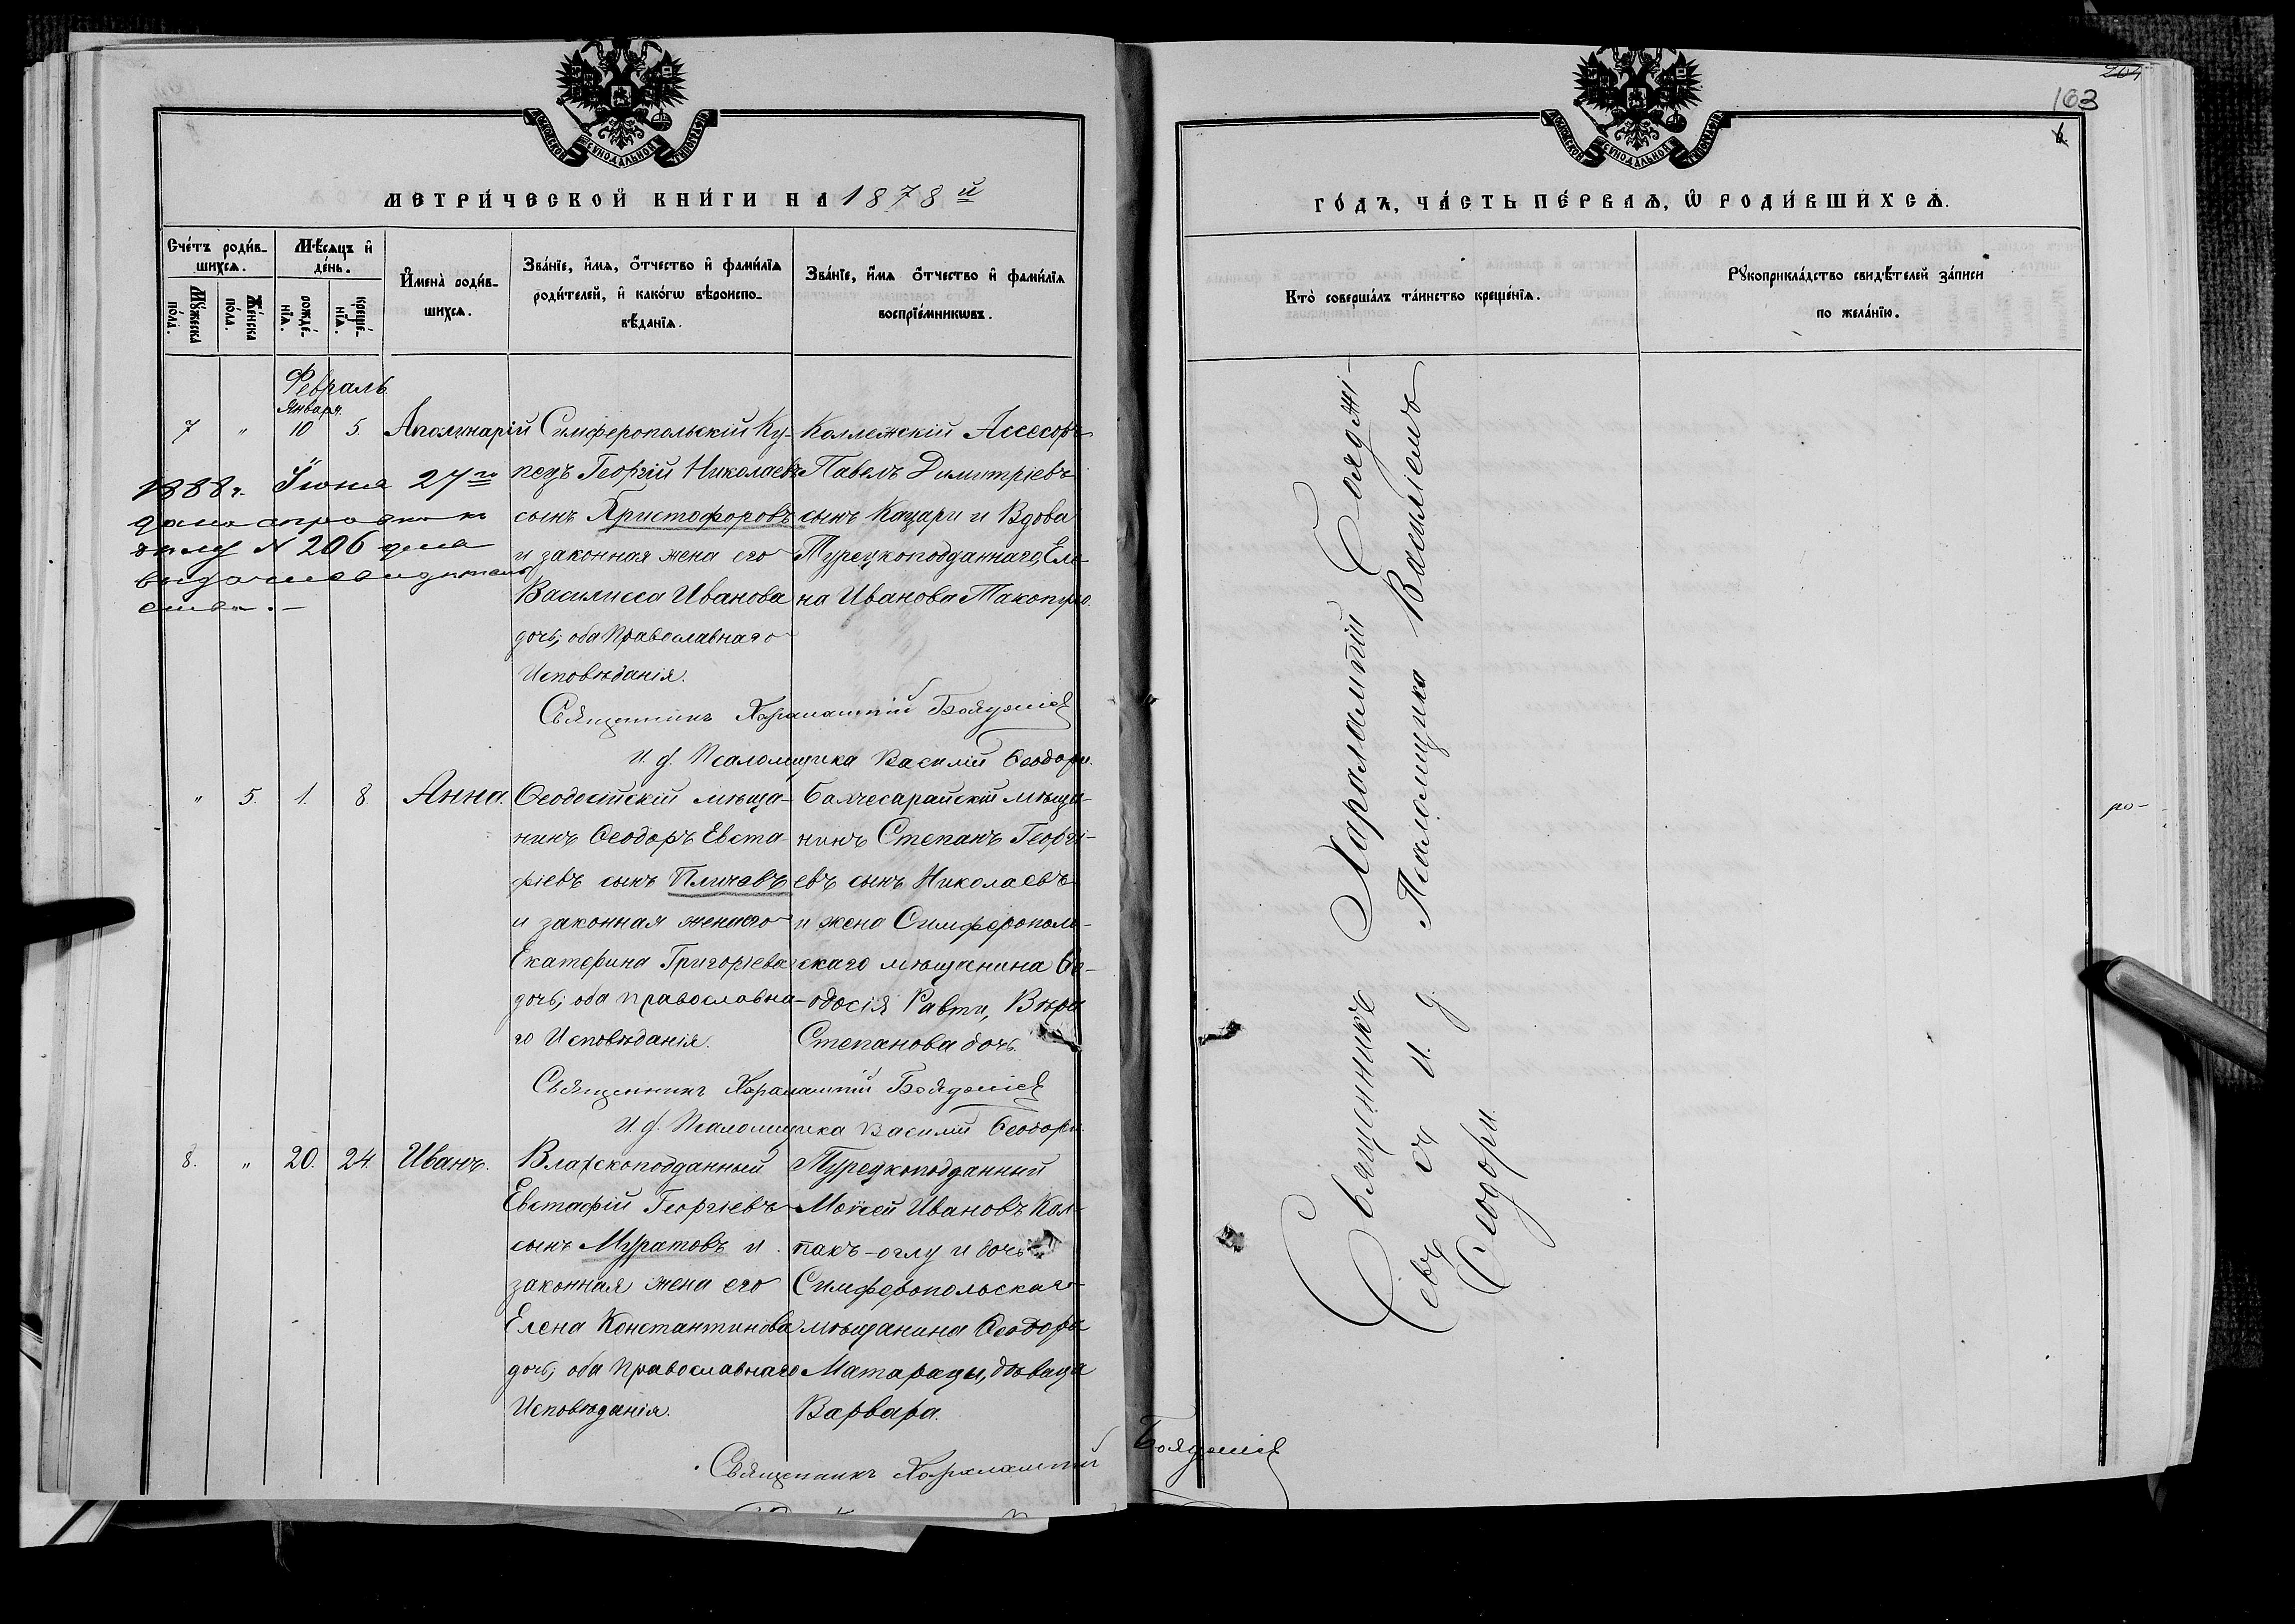 МОСКОВСКОЙ СѴНОДАЛЬНОЙ ТИПОГРАФІИ
МЕТРИ́ЧЕСКОЙ КНИ́ГИ НА 1878 й
Сче́тъ роди́вшихсѧ.
Мѣ́сѧцъ и де́нь.
Мꙋ́жеска по́ла.
Же́нска по́ла.
рожде́нїѧ.
креще́нїѧ.
И҆мена̀ роди́вшихсѧ.
Зва́нїе, и҆́мѧ, ѻ҆́тчество и҆ фами́лїѧ
роди́телей, и҆ како́гѡ вѣроиспо-
вѣ́данїѧ.
Зва́нїе, и҆́мѧ ѻ҆́тчество и҆ фами́лїѧ
воспрїе́мникѡвъ.
Февраль.
Января.
7 " 10 5. Аполинарій
Симферопольскій Ку-
пецъ Георгій Николаевъ
сынъ Христофоровъ
и законная жена его
Василисса Иванова
дочь; оба Православнаго
Исповѣданія.
Коллежскій Ассесоръ
Павелъ Димитріевъ
сынъ Кацари и Вдова
Турецкоподданнаго, Еле-
на Иванова
1888 г. Іюня 27 го
дана справка
№ 206 для
выдачи свидѣтель
ства. —
Священникъ Харалампій Бояджіевъ
И. д. Псаломщика Василій Ѳеодори.
" 5. 1. 8. Анна.
Ѳеодосійскій мѣща-
нинъ Ѳеодоръ Евста-
фіевъ сынъ Пличевъ
и законная жена его
Екатерина Григорьева
дочь; оба православна-
го Исповѣданія.
Бахчесарайскій мѣща-
нинъ Степанъ Георгі-
евъ сынъ Николаевъ
и жена Симферополь-
скаго мѣщанина Ѳе-
одосія Равти, Вѣра
Степанова дочь.
Священникъ Харалампій Бояджіевъ
И. д. Псаломщика Василій Ѳеодори.
8. " 20. 24. Иванъ.
Влахскоподданный
Евстафій Георгіевъ
сынъ Муратовъ и
законная жена его
Елена Константинова
дочь; оба Православнаго
Исповѣданія.
Турецкоподданный
Моѵсей Ивановъ Кол-
пакъ-оглу и дочь
Симферопольскаго
мѣщанина Ѳеодора
Матарацы, дѣвица
Варвара.
Священникъ Харалампій Бояджіевъ
МОСКОВСКОЙ СѴНОДАЛЬНОЙ ТИПОГРАФІИ
204
163
ГО́ДЪ, ЧА́СТЬ ПЕ́РВАѦ, Ѡ҆ РОДИ́ВШИХСѦ.
Кто̀ соверша́лъ та́инство креще́нїѧ.
Рꙋкоприкла́дство свидѣ́телей за́писи
по жела́нїю.
Священникъ Харалампій Бояджі-
евъ съ и. д. Псаломщика Василіемъ
Ѳеодори.
ро-